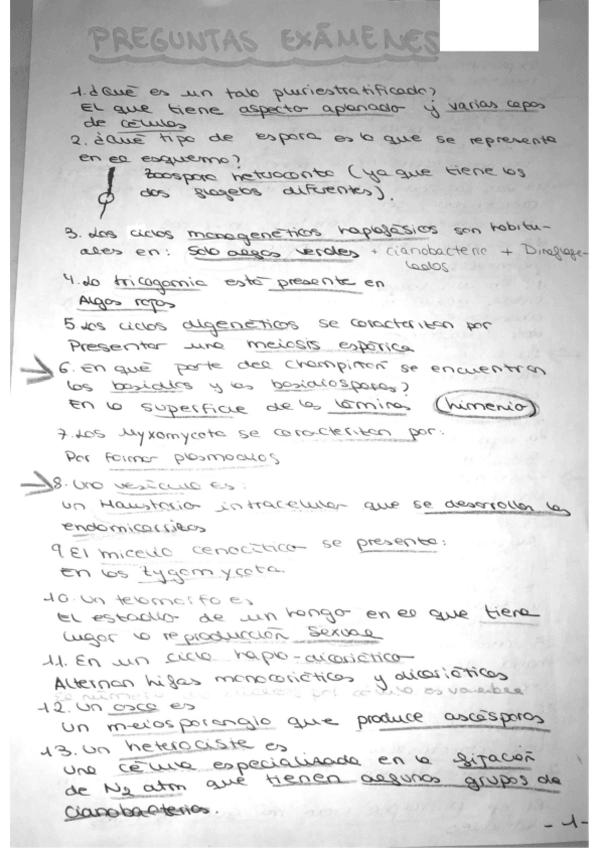 PREGUNTAS EXÁMENES
1. ¿Qué es un talo pluriestratificado?
El que tiene aspecto aplanado y varias capas
de células
2. ¿Qué tipo de espora es la que se representa
en el esquema?
Zoospora heteroconta (ya que tiene los
dos flagelos diferentes).
3. Los ciclos monogenéticos haplofásicos son habitu-
ales en: Solo algas verdes + cianobacterie + Dinoflage-
lados
4. La tricogamia está presente en
Algas rojas
5. Los ciclos digenéticos se caracterizan por
Presentar una meiosis espórica
6. En qué parte del champiñón se encuentran
los basidios y las basidiosporas?
En la superficie de las láminas (himenio)
7. Los Myxomycota se caracterizan por:
Por formar plasmodios
8. Una vesícula es:
un Haustorio intracelular que se desarrolla las
endomicorrizas
9 El micelio cenocítico se presenta:
En los zygomycota.
10. Un telomorfo es
El estadio de un hongo en el que tiene
lugar la reproducción sexual
11. En un ciclo haplo-dicariótico
Alternan hifas monocarióticas y dicarióticas
12. Un asca es
un meiosporangio que produce ascósporas
13. Un heterociste es
una célula especializada en la fijación
de N2 atm que tienen algunos grupos de
cianobacterias.
-1-